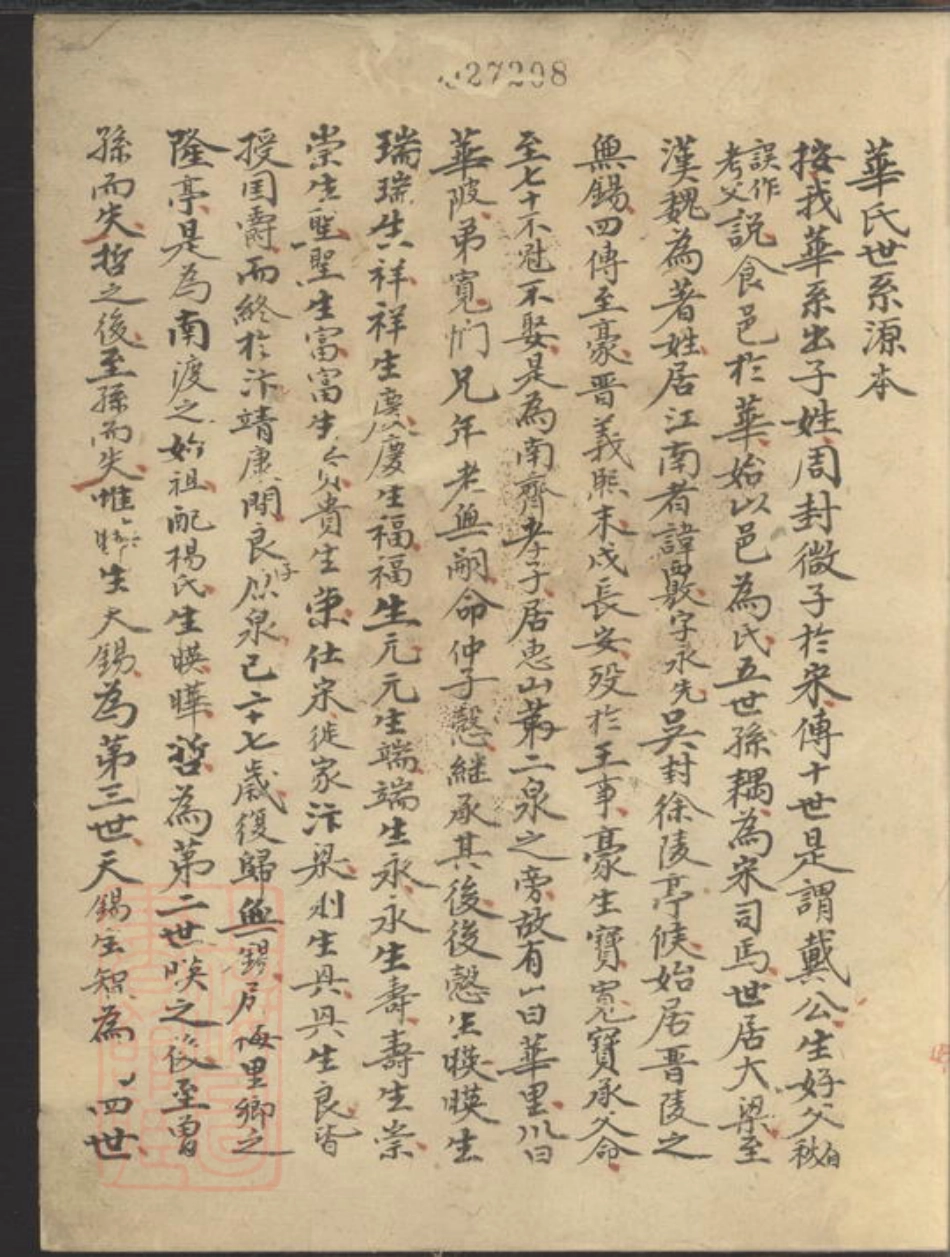 27298
華氏世系源本
按我華系出子姓周封微子於宋傳十世是謂戴公生好父秘自
誤作考父說食邑於華始以邑為氏五世孫耦為宋司馬世居大梁至
漢魏為著姓居江南者諱覈字永先吳封徐陵亭候始居晋陵之
無錫四傳至豪晋義熙末戍長安歿於王事豪生寶寬寶承父命
至七十不冠不娶是為南齊孝子居惠山第二泉之旁故有山曰華里以曰
華陂弟寬悯兄年老無嗣命仲子慤継承其後後慤生暎暎生
瑞瑞生祥祥生慶慶生福福生元元生端端生永永生壽壽生崇
崇生聖聖生富富生貴生荣仕宋徙家汴梁生具具生良皆
授国爵而終於汴靖康間良以泉已六十七歲復歸無錫居梅里鄉之
隆亭是為南渡之始祖配楊氏生暎曄皙為第二世暎之後至曽
孫而失皙之後至孫而失惟生天錫為第三世天錫生智為四世